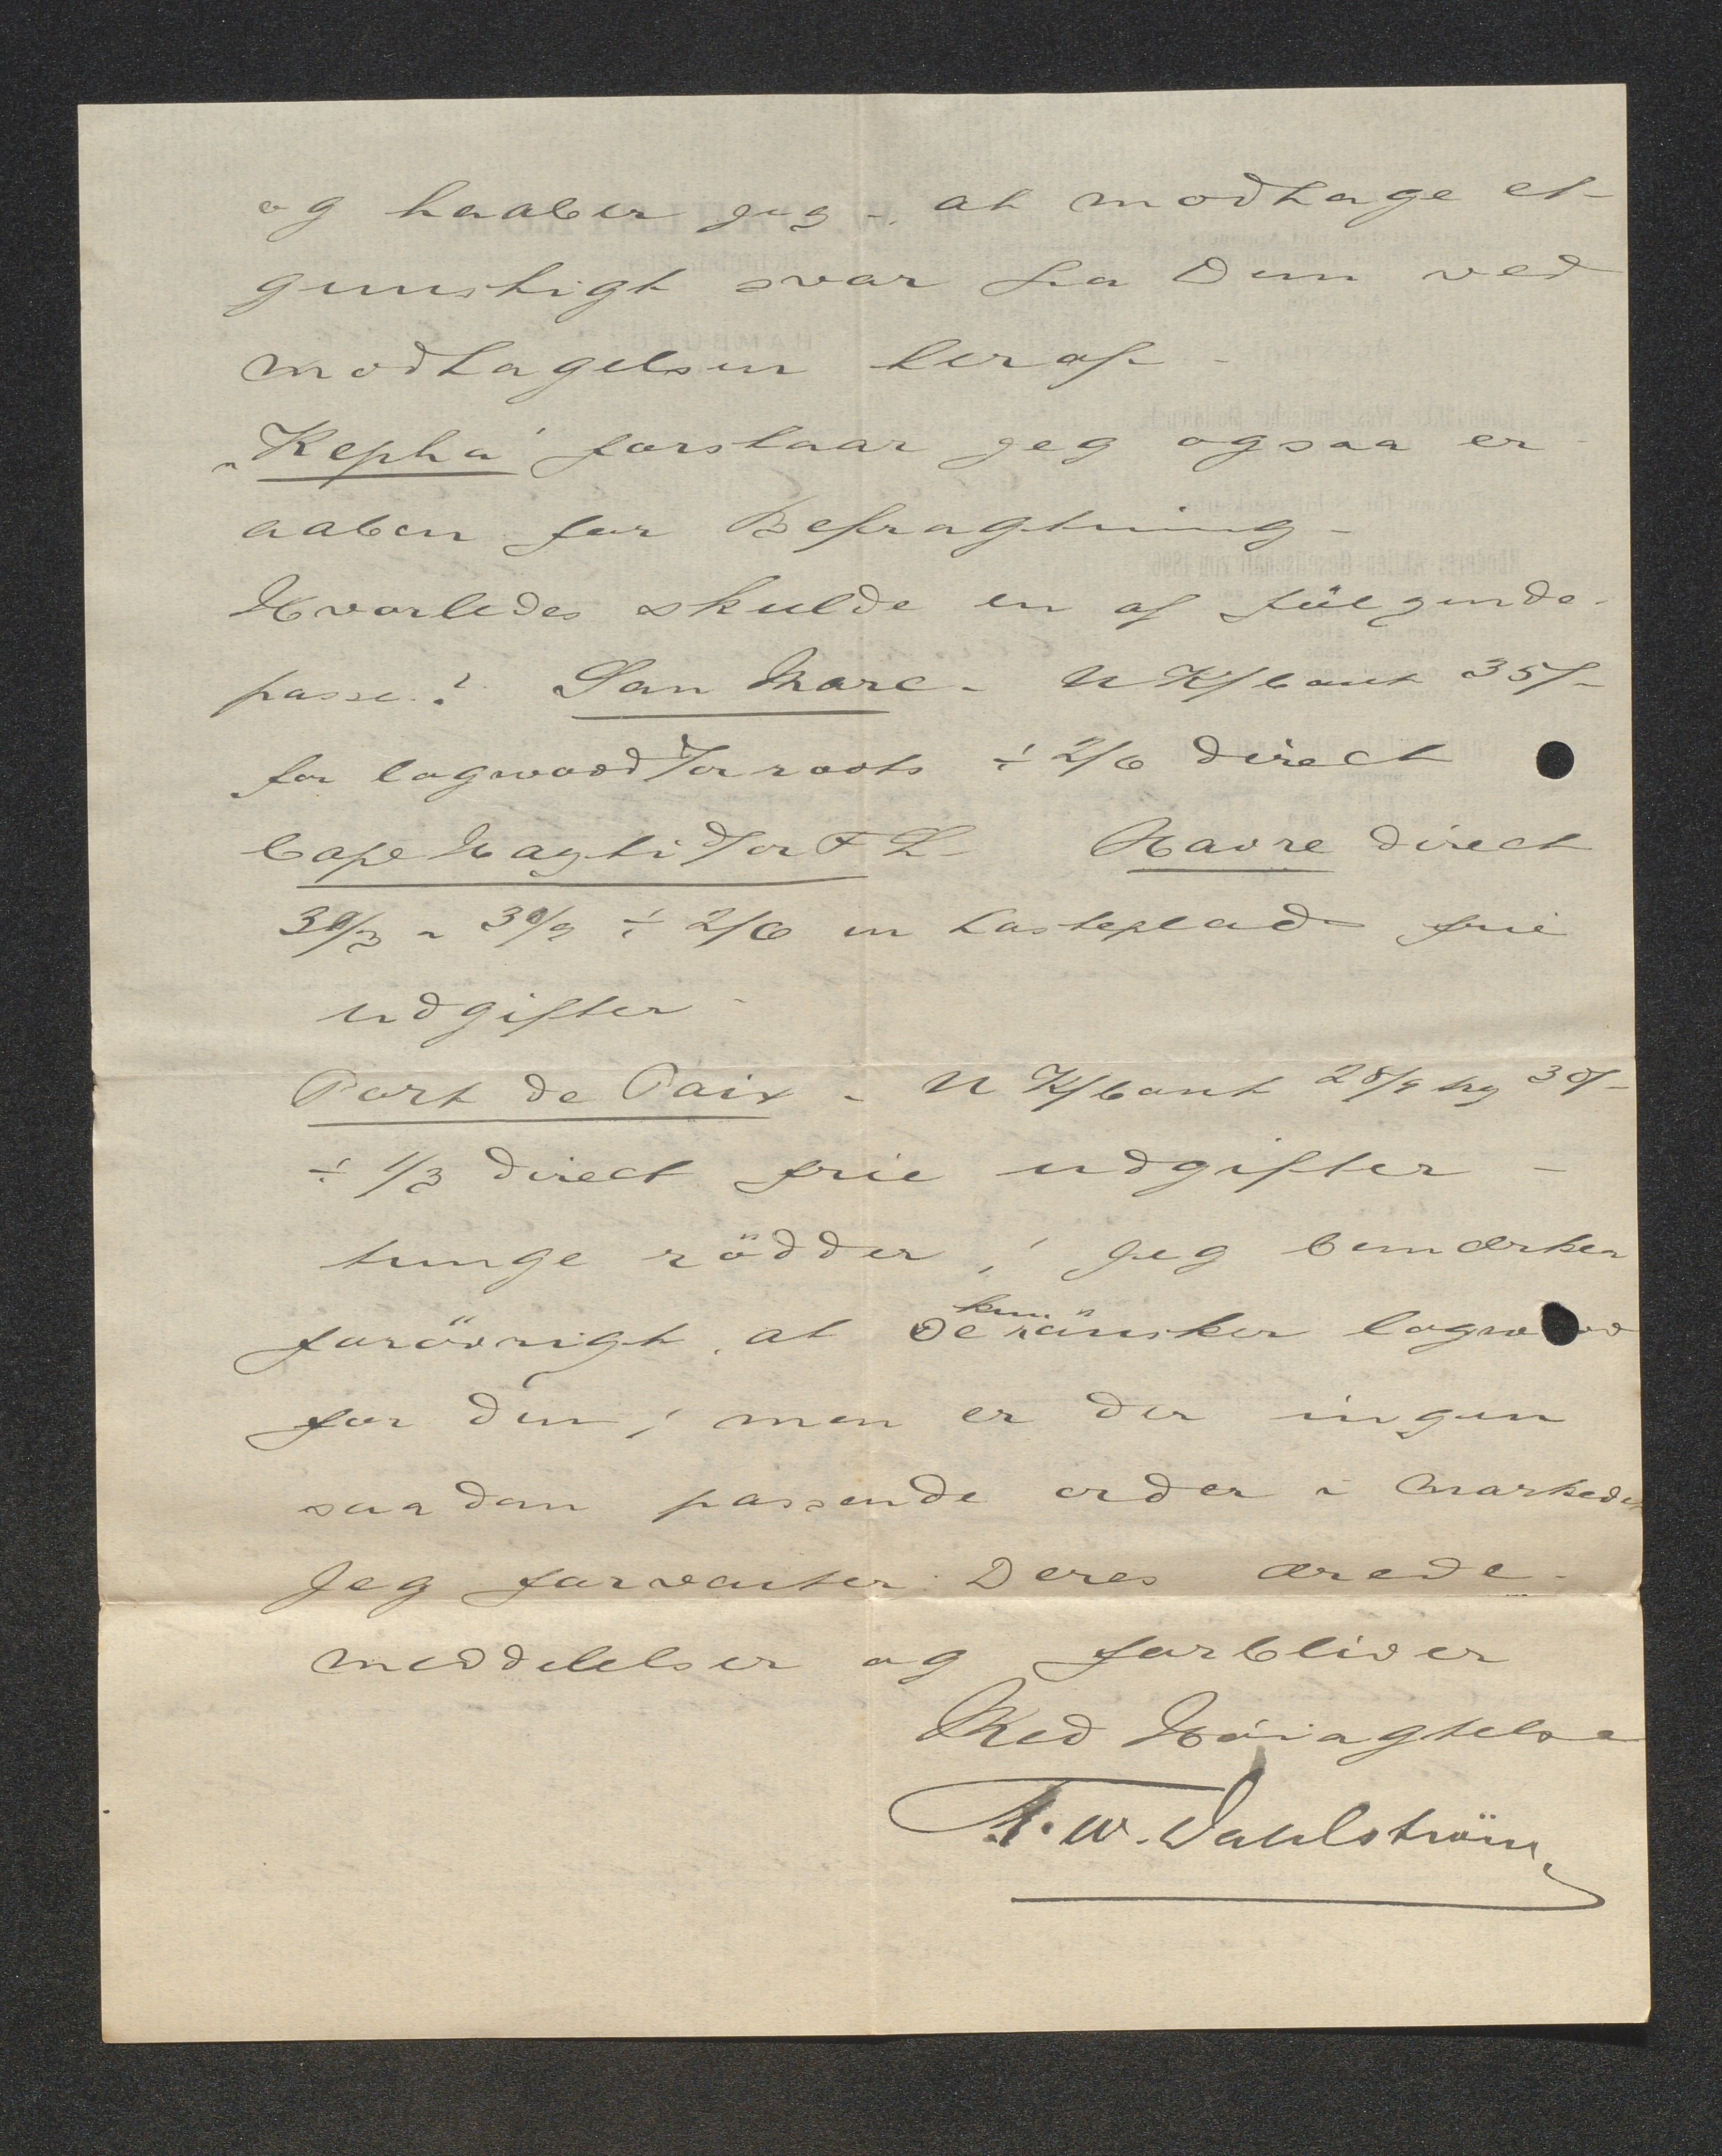 og haaber jeg - at modtage et
gunstigt svar fra Dem ved
modtagelsen heraf -
"Kepha" forstaar jeg ogsaa er
aaben for Befragtning -
Hvorledes skulde en af fölgende
passe? San Marc - UK/Cont 35/-
for logwood &/or roots ÷ 2/6 direct
Cape Hayti &/or F L - Havre direct
÷ 2/6 en lasteplads frie
udgifter -
Port de Paix - UK/Cont 28/9 30/-
÷ 1/3 direct frie udgifter -
tunge rödder; Jeg bemærker
forövrigt, at De kun önsker logwood
for den; men er der ingen
saadan passende order i Markedet
Jeg forventer Deres ærede
meddelelser og forbliver
Med Höiagtelse
A. W. Dahlström